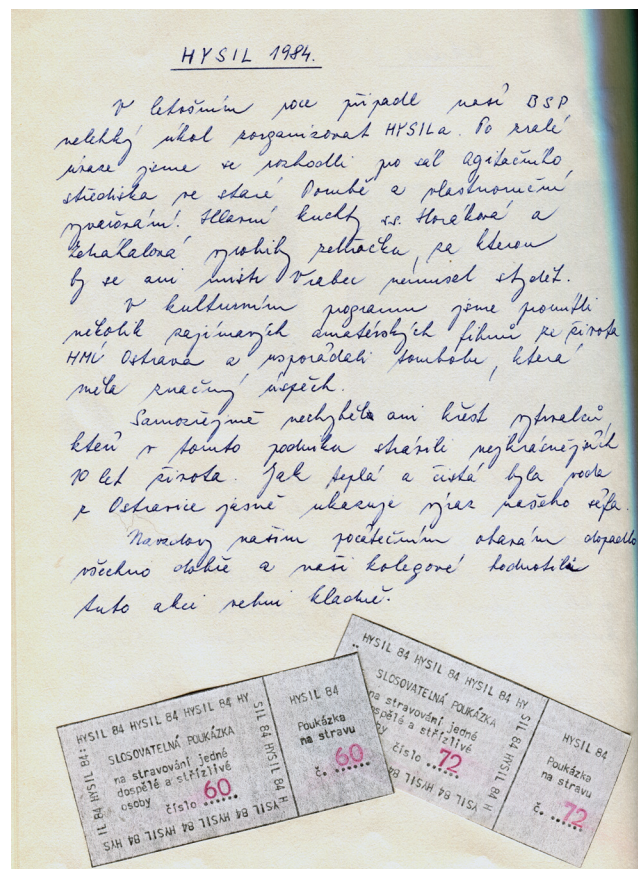 HYSIL 1984.
V letošním roce připadl naší BSP
nelehký úkol zorganizovat HYSILa. Po zralé
úvaze jsme se rozhodli pro sál agitačního
střediska ve staré Porubě a vlastnoruční
vyvařování. Hlavní kuchty ss. Horáková a
Zehákalová vyrobily zelňačku, za kterou
by se ani mistr Vrabec nemusel stydět.
V kulturním programu jsme promítli
několik zajímavých amatérských filmů ze života
HMÚ Ostrava a uspořádali tombolu, která
měla značný úspěch.
Samozřejmě nechyběl ani křest vytrvalců,
kteří v tomto podniku strávili nejkrásnějších
10 let života. Jak teplá a čistá byla voda
z Ostravice jasně ukazuje výraz našeho šéfa.
Navzdory našim počátečním obavám dopadlo
všechno dobře a naši kolegové hodnotili
tuto akci velmi kladně.
HYSIL 84 HYSIL 84 HYSIL 84 HYSIL 84 HY
SIL 84 HYSIL 84 H
YSIL 84 HYSIL 84 HYSIL 84 HYSIL 84 HYS
IL 84 HYSIL 84:
SLOSOVATELNÁ POUKÁZKA
na stravování jedné
dospělé a střízlivé
osoby číslo 60
HYSIL 84
Poukázka
na stravu
č. 60
HYSIL 84 HYSIL 84 HYSIL 84 HYSIL 84 HY
SIL 84 HYSIL 84 H
YSIL 84 HYS
SLOSOVATELNÁ POUKÁZKA
na stravování jedné
dospělé a střízlivé
osoby číslo 72
HYSIL 84
Poukázka
na stravu
č. 72